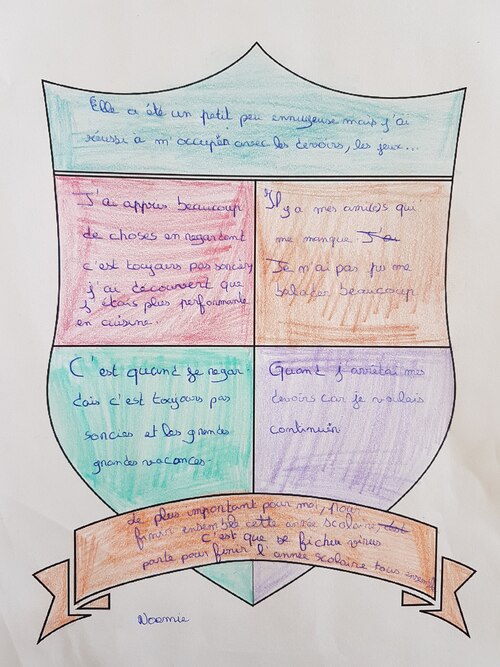 Elle a été un petit peu ennuyeuse mais j'ai
réussi à m'occuper avec les devoirs, les jeux...
J'ai appris beaucoup
de choses en regardent
c'est toujours pas sorcier,
j'ai découvert que
j'étais plus performante
en cuisine..
Il y a mes ami(e)s qui
me manque. J'ai
Je n'ai pas pu me
balader beaucoup
C'est quand je regar-
dais c'est toujours pas
sorcier et les grandes
grandes vacances.
Quand j'arrêtai mes
devoirs car je voulais
continuer
Le plus important pour moi, pour
finir ensemble cette année scolaire, c'est
C'est que se fichu virus
parte pour finir l'année scolaire tous ensemble
Noemie